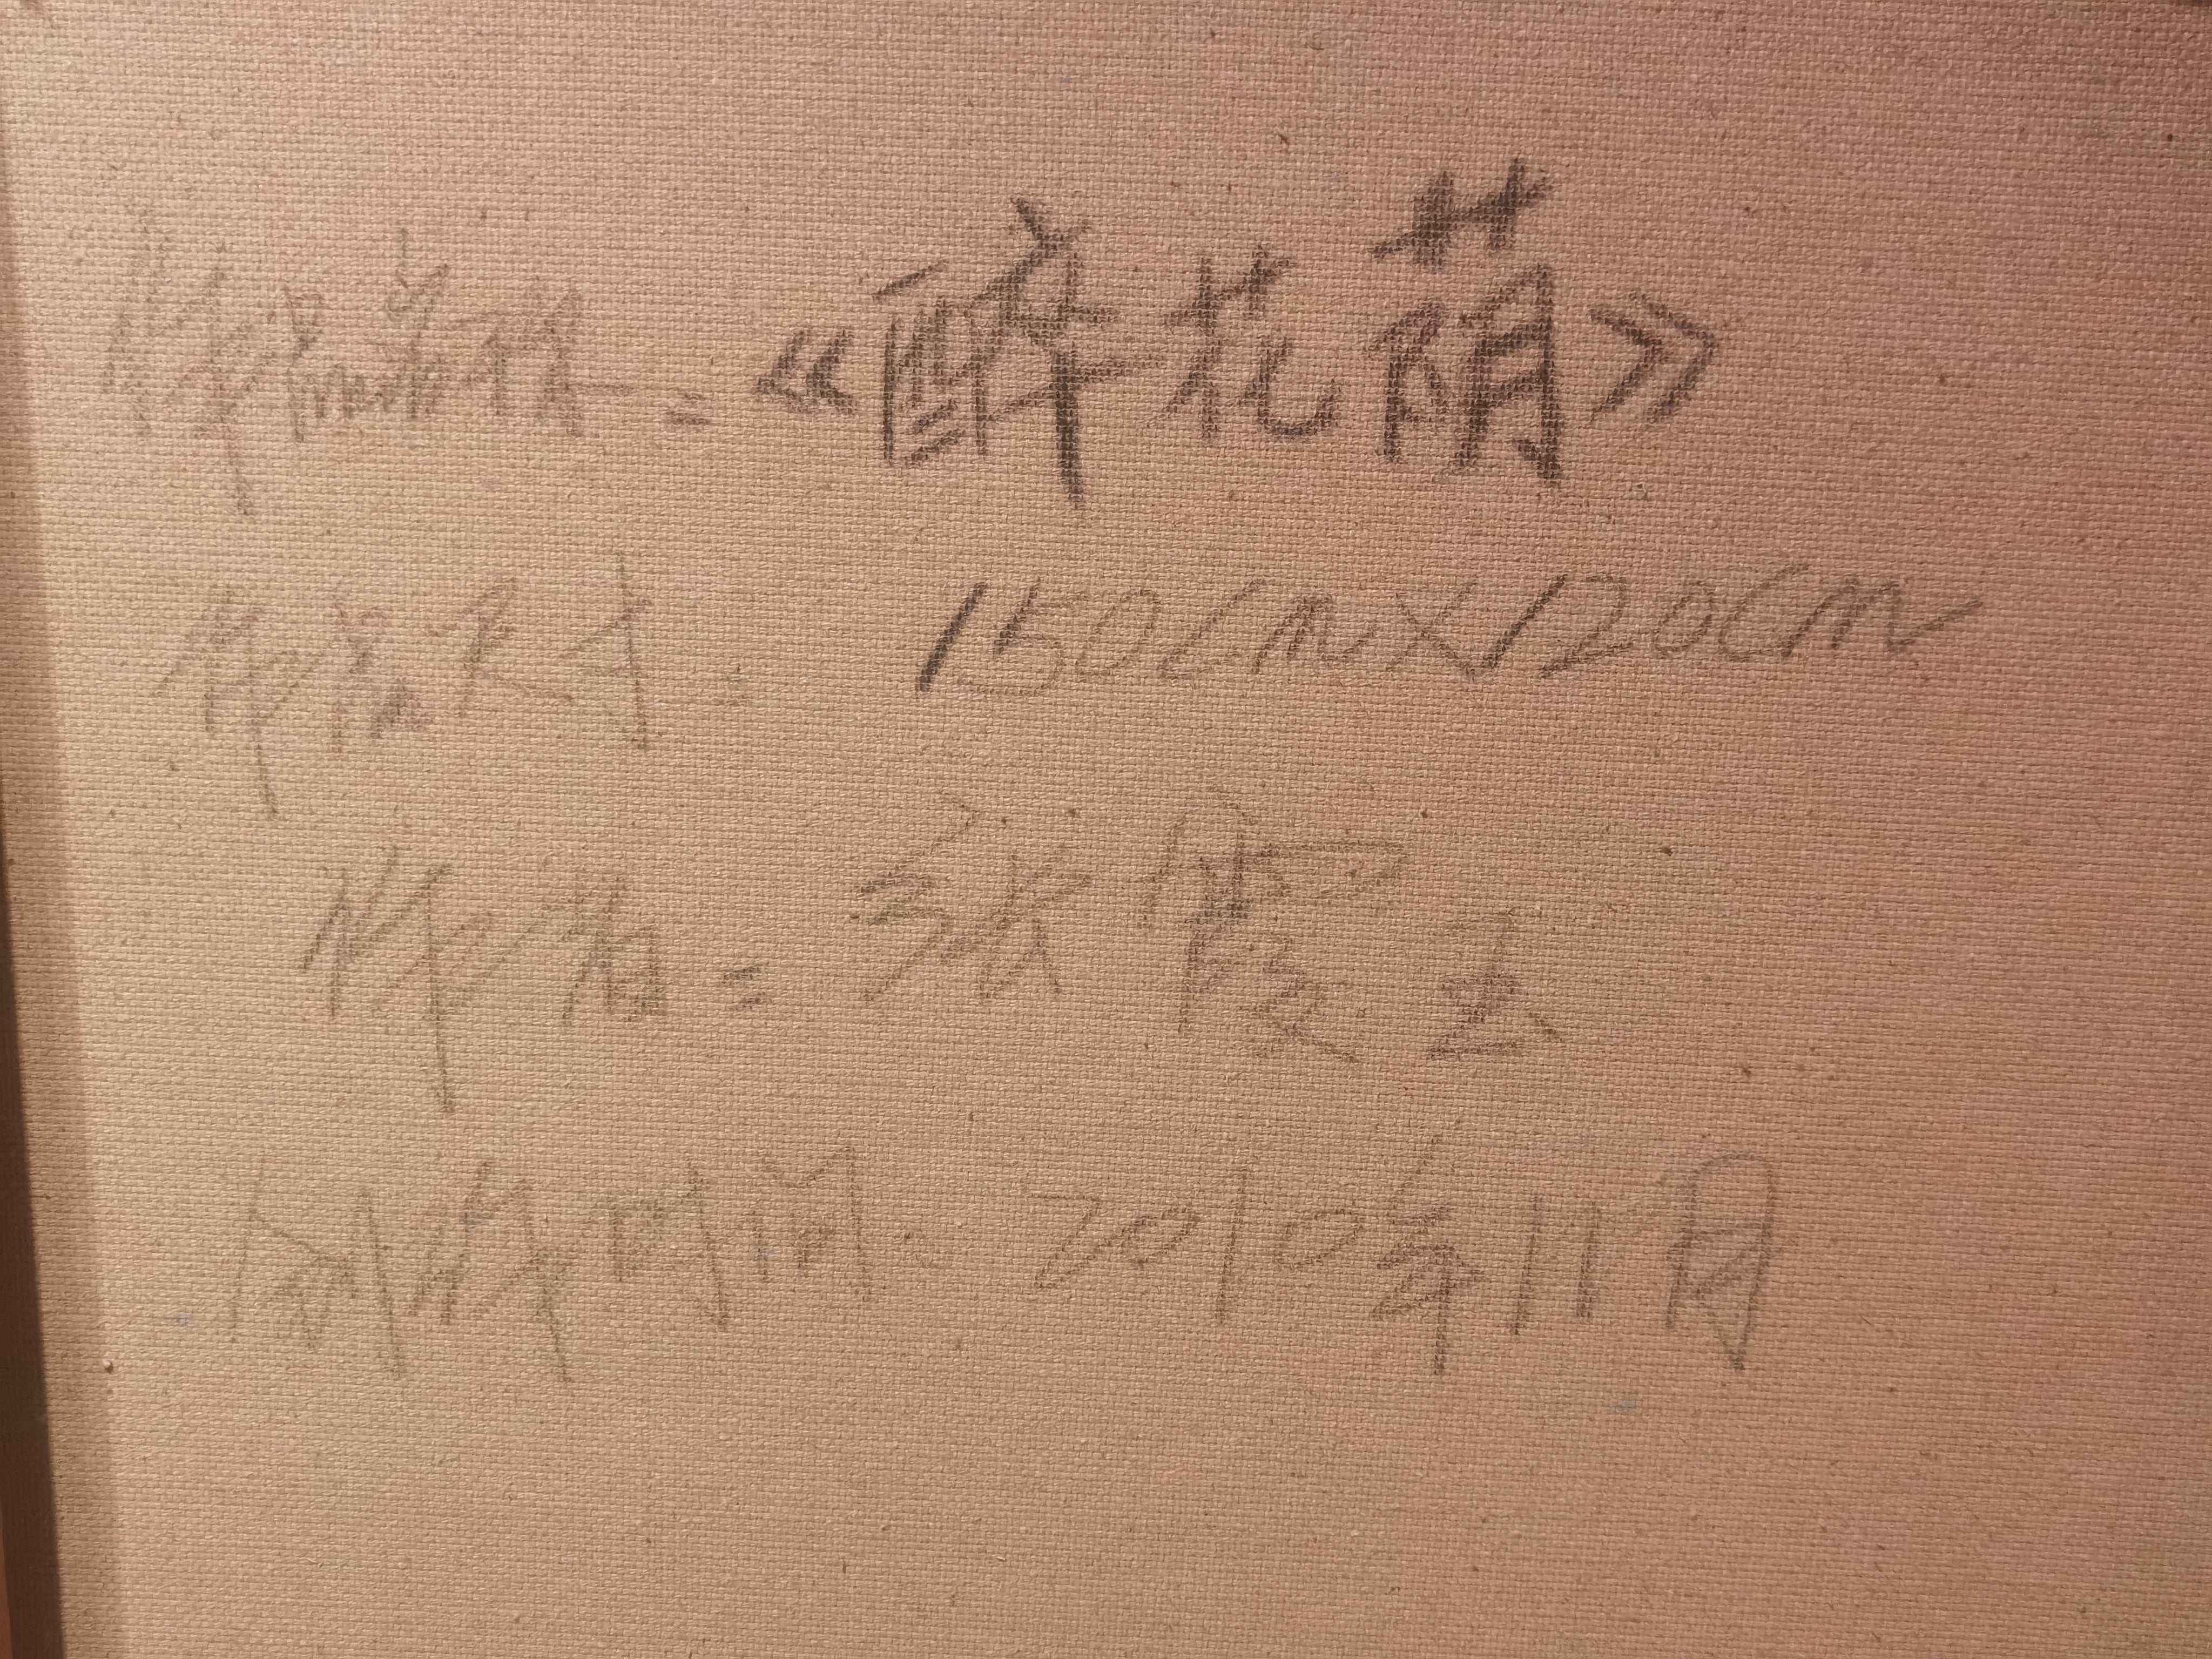 作品名称：《醉花荫》
作品尺寸：150cm×120cm
作者：张俊
创作时间：2010年11月